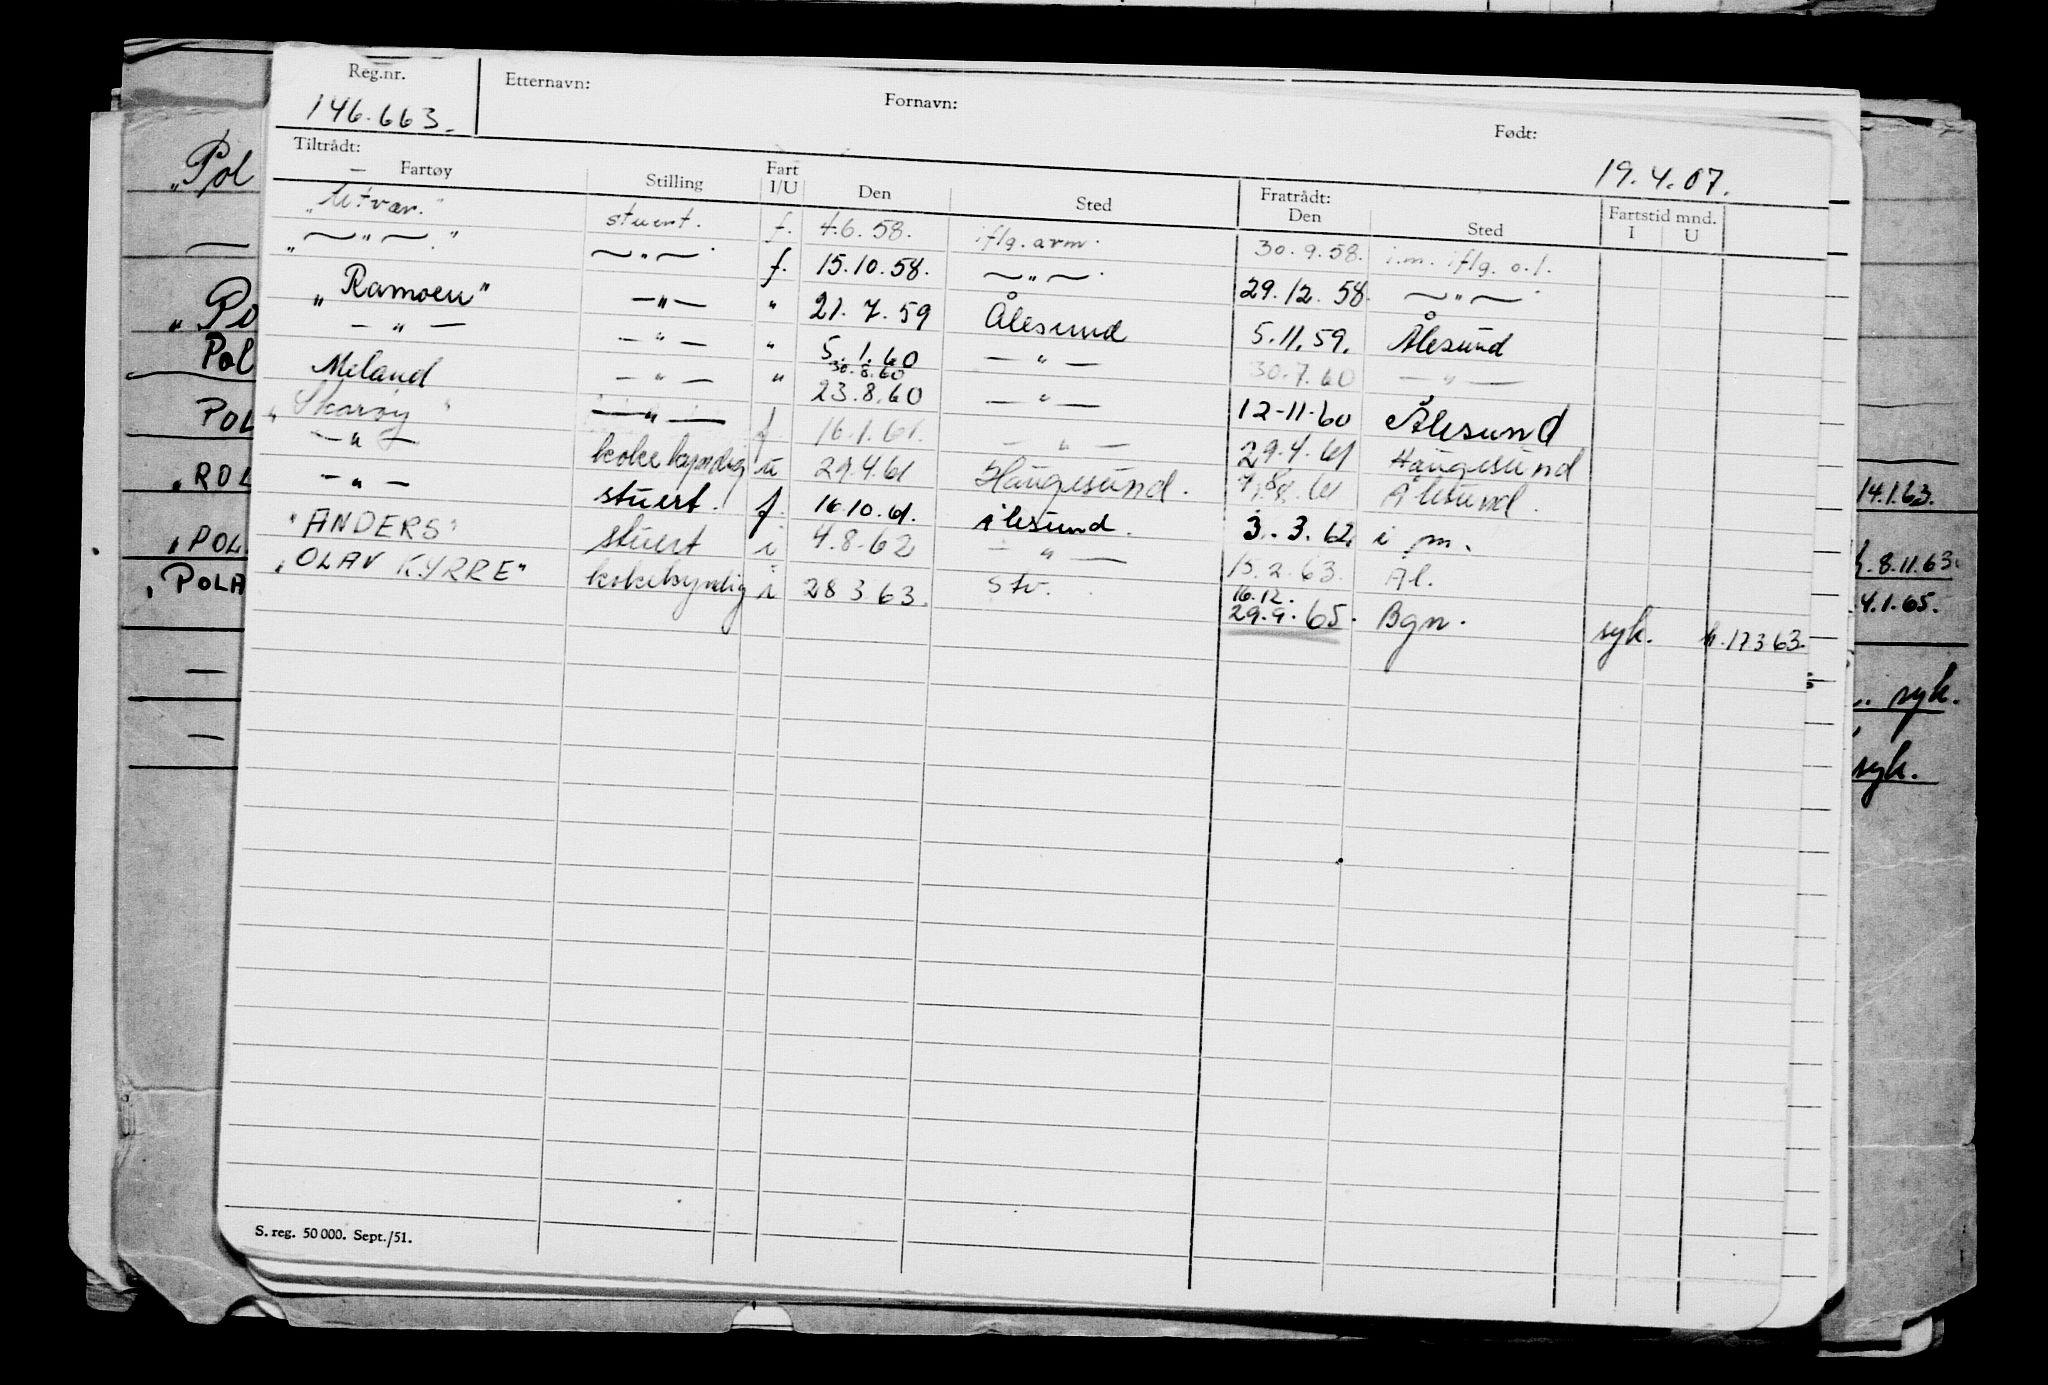 Reg.nr. Etternavn: Fornavn: Født:
146.663. 19.4.07.
Tiltrådt: Fratrådt:
Fartøy Stilling Fart I/U Den Sted Den Sted Fartstid mnd. I U
"Utvær." stuert. f. 4.6.58. iflg. arm. 30.9.58. i.m. iflg. o.l.
" — " — " — " — f. 15.10.58. — " — 29.12.58. — " —
"Ramoen" — " — " 21.7.59 Ålesund 5.11.59. Ålesund
— " — — " — " 5.1.60 — " — 30.7.60 — " —
30.8.60
Meland — " — " 23.8.60 — " — 12-11-60 Ålesund
"Skarøy" — " — f 16.1.61. — " — 29.4.61 Haugesund
— " — kokekyndig u 29.4.61 Haugesund. Ålesund.
— " — stuert. f. 16.10.61. Ålesund. 3.3.62. i m.
"ANDERS" stuert i 4.8.62 — " — 15.2.63. Ål.
"OLAV KYRRE" kokekyndig i 28 3 63. Stv. 16.12. 29.9.65. Bgn. syk. h. 17 3 63.
S. reg. 50 000. Sept./51.
"Pol
—
"Po
Pol
POL
"ROL
"POL
"POLA
—
—
14.1.63.
8.11.63.
4.1.65.
syk.
syk.